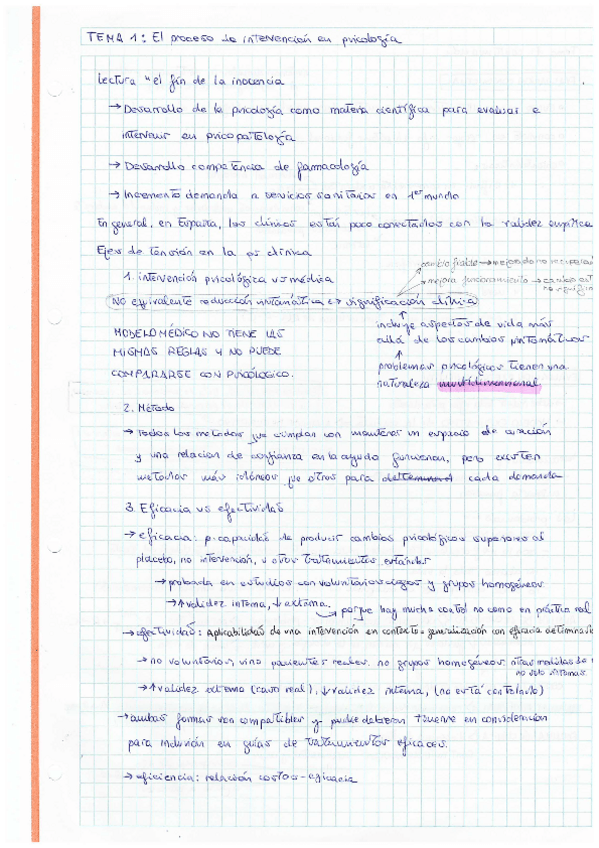 TEMA 1: El proceso de intervención en psicología
Lectura "el fin de la inocencia
→ Desarrollo de la psicología como materia científica para evaluar e
intervenir en psicopatología
→ Desarrollo competencia de farmacología
→ Incremento demanda a servicios sanitarios en 1er mundo
En general, en España, los clínicos están poco conectados con la validez empírica
Ejes de tensión en la ps clínica
1. intervención psicológica vs médica
cambio fiable → mejorado no recuperado
mejora funcionamiento → cambio
NO equivalente reducción sintomática ↔ significación clínica
MODELO MÉDICO NO TIENE LAS
MISMAS REGLAS Y NO PUEDE
COMPARARSE CON PSICOLÓGICO.
incluye aspectos de vida más
allá de los cambios sintomáticos
problemas psicológicos tienen una
naturaleza multidimensional
2. Método
→ Todos los métodos que cumplan con mantener un espacio de curación
y una relación de confianza en la ayuda funcionan, pero existen
métodos más idóneos que otros para cada demanda
3. Eficacia vs efectividad
→ eficacia: capacidad de producir cambios psicológicos superiores al
placebo, no intervención, u otros tratamientos estándar
→ probada en estudios con voluntarios ciegos y grupos homogéneos
→ ↑ validez interna, ↓ externa. → porque hay mucho control no como en práctica real
→ efectividad: Aplicabilidad de una intervención en contexto = generalización con eficacia
→ no voluntarios, sino pacientes reales. no grupos homogéneos. otras medidas de
no solo síntomas
→ ↑ validez externa (caso real), ↓ validez interna, (no está controlado)
→ ambas formas son compatibles y pueden tenerse en consideración
para inclusión en guías de tratamientos eficaces.
→ eficiencia: relación costos-eficacia